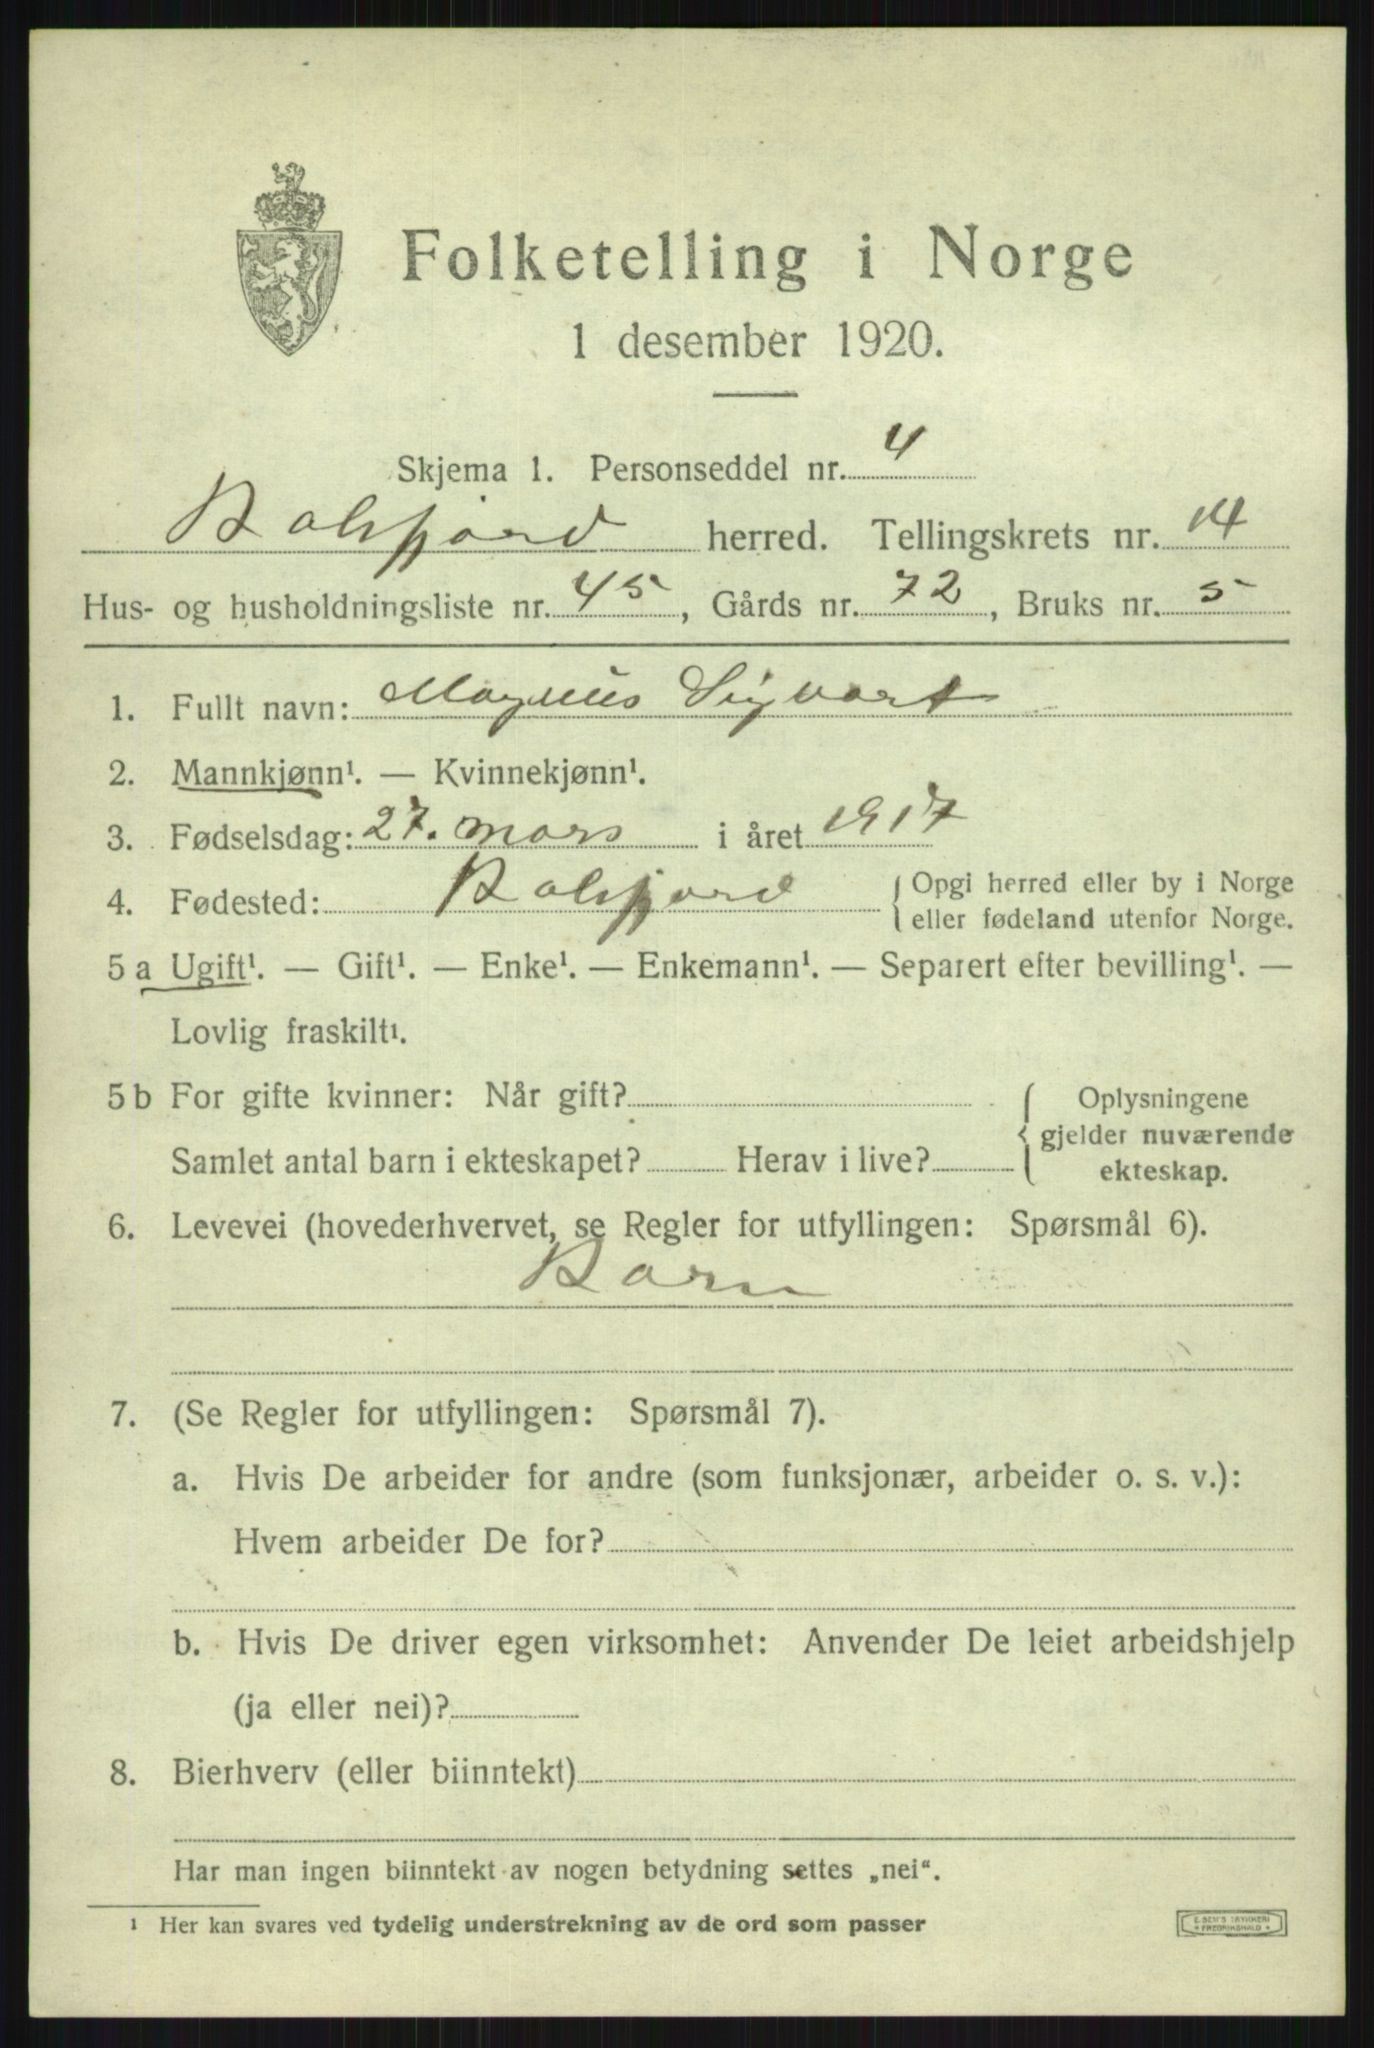 Folketelling i Norge
1 desember 1920.
Skjema 1. Personseddel nr. 4
Balsfjord herred. Tellingskrets nr. 14
Hus- og husholdningsliste nr. 45, Gårds nr. 72, Bruks nr. 5
1. Fullt navn: Magnus Sigvart
2. Mannkjønn¹. — Kvinnekjønn¹.
3. Fødselsdag: 27. mars i året 1917
4. Fødested: Balsfjord { Opgi herred eller by i Norge
eller fødeland utenfor Norge.
5 a Ugift¹. — Gift¹. — Enke¹. — Enkemann¹. — Separert efter bevilling¹. —
Lovlig fraskilt¹.
5 b For gifte kvinner: Når gift?
Samlet antal barn i ekteskapet? Herav i live?
Oplysningene
gjelder nuværende
ekteskap.
6. Levevei (hovederhvervet, se Regler for utfyllingen: Spørsmål 6).
Barn
7. (Se Regler for utfyllingen: Spørsmål 7).
a. Hvis De arbeider for andre (som funksjonær, arbeider o. s. v.):
Hvem arbeider De for?
b. Hvis De driver egen virksomhet: Anvender De leiet arbeidshjelp
(ja eller nei)?
8. Bierhverv (eller biinntekt)
Har man ingen biinntekt av nogen betydning settes „nei“.
¹ Her kan svares ved tydelig understrekning av de ord som passer
E. SEM'S TRYKKERI
* FREDRIKSHALD *